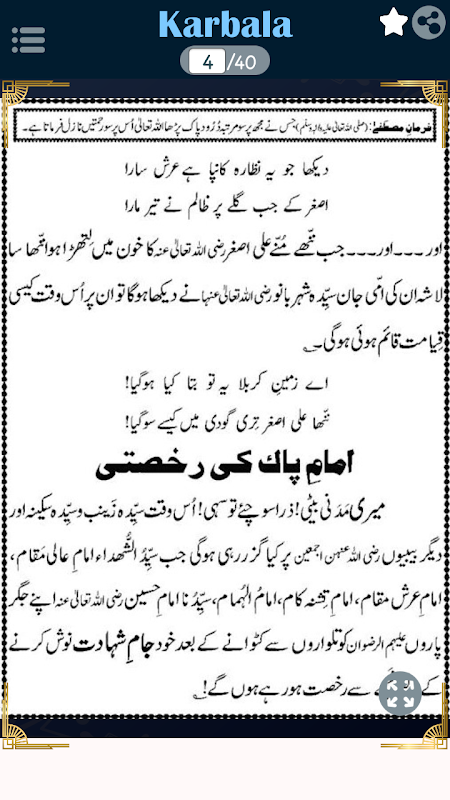 Karbala
4/40
فرمانِ مصطفےٰ: (صلی اللہ تعالیٰ علیہ والہٖ وسلم) جس نے مجھ پر سو مرتبہ دُرُودِ پاک پڑھا اللہ تعالیٰ اُس پر سو رحمتیں نازل فرماتا ہے۔
دیکھا جو یہ نظارہ کانپا ہے عرش سارا
اصغر کے جب گلے پر ظالم نے تیر مارا
اور۔۔۔اور۔۔۔جب ننھے مُنّے علی اصغر رضی اللہ تعالیٰ عنہ کا خون میں لِتھڑا ہوا ننھا سا
لاشہ ان کی امّی جان سیِّدہ شہر بانو رضی اللہ تعالیٰ عنہا نے دیکھا ہوگا تو ان پر اُس وقت کیسی
قِیامت قائم ہوئی ہوگی۔
اے زمینِ کربلا یہ تو بتا کیا ہوگیا!
ننھا علی اصغر تِری گودی میں کیسے سوگیا!
امامِ پاک کی رخصتی
میری مَدَنی بیٹی! ذرا سوچئے تو سہی! اُس وقت سیِّدہ زَینب و سیِّدہ سکینہ اور
دیگر بیبیوں رضی اللہ عنہن اجمعین پر کیا گزر رہی ہوگی جب سیِّدُ الشُّھداء امامِ عالی مَقام،
امامِ عرش مقام، امامِ تِشنہ کام، امامُ الہُمام، سیِّدُنا امامِ حسین رضی اللہ تعالیٰ عنہ اپنے جگر
پاروں علیہم الرضوان کو تلواروں سے کٹوانے کے بعد خود جامِ شہادت نوش کرنے
کے سے رخصت ہو رہے ہوں گے!